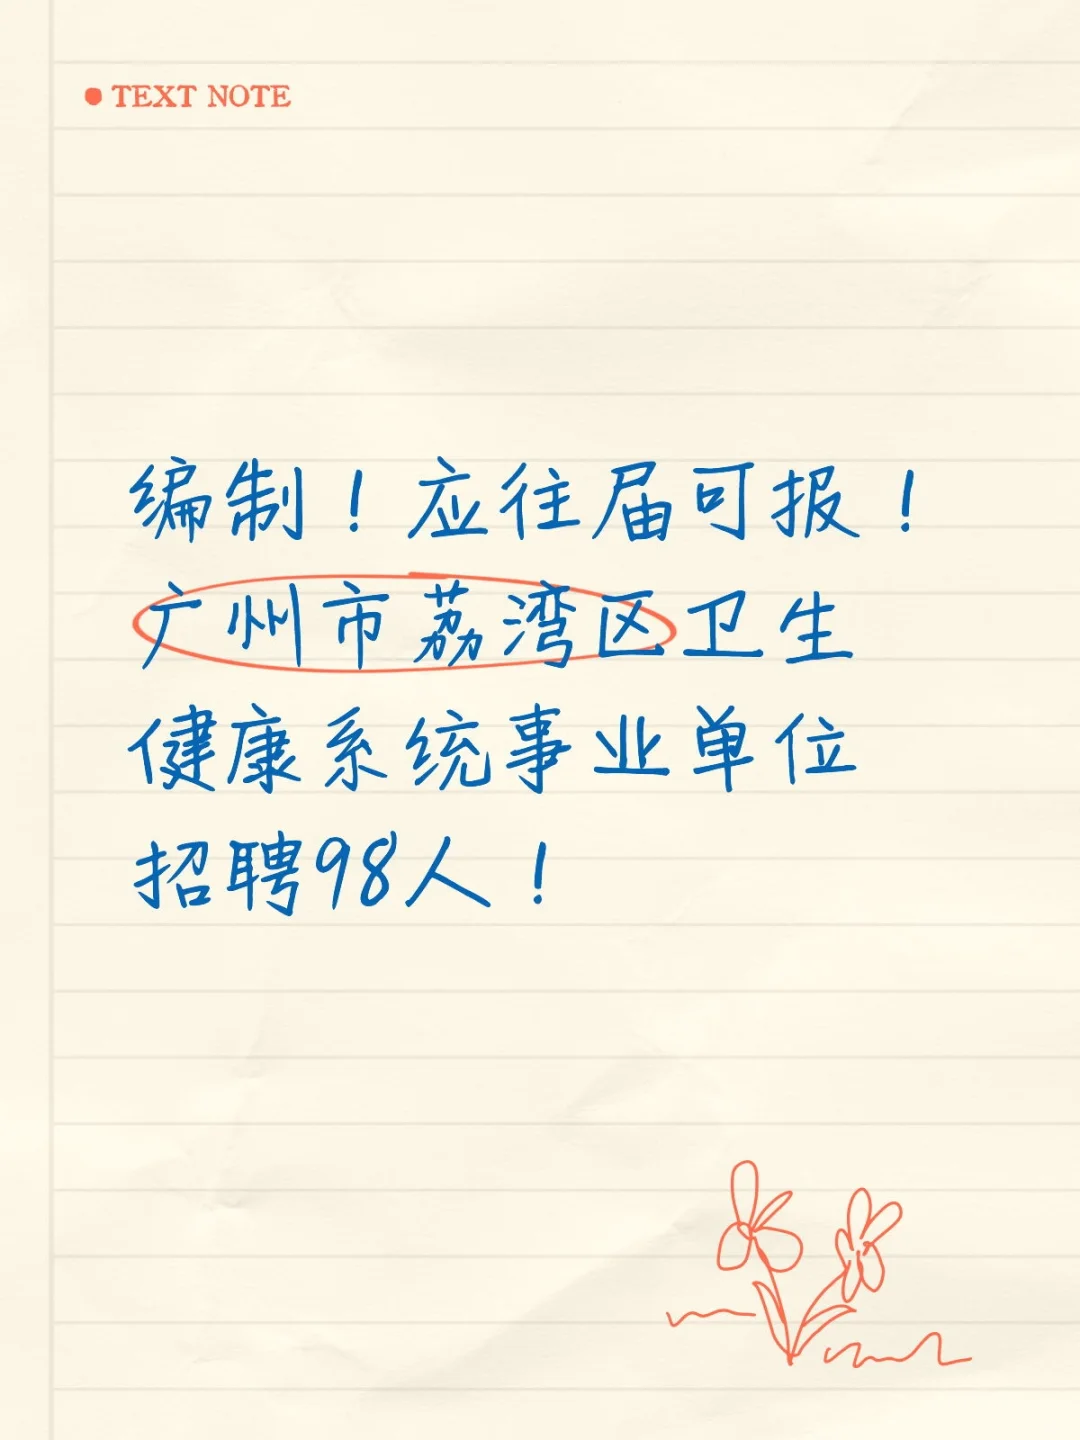 TEXT NOTE
编制！应往届可报！
广州市荔湾区卫生
健康系统事业单位
招聘98人！